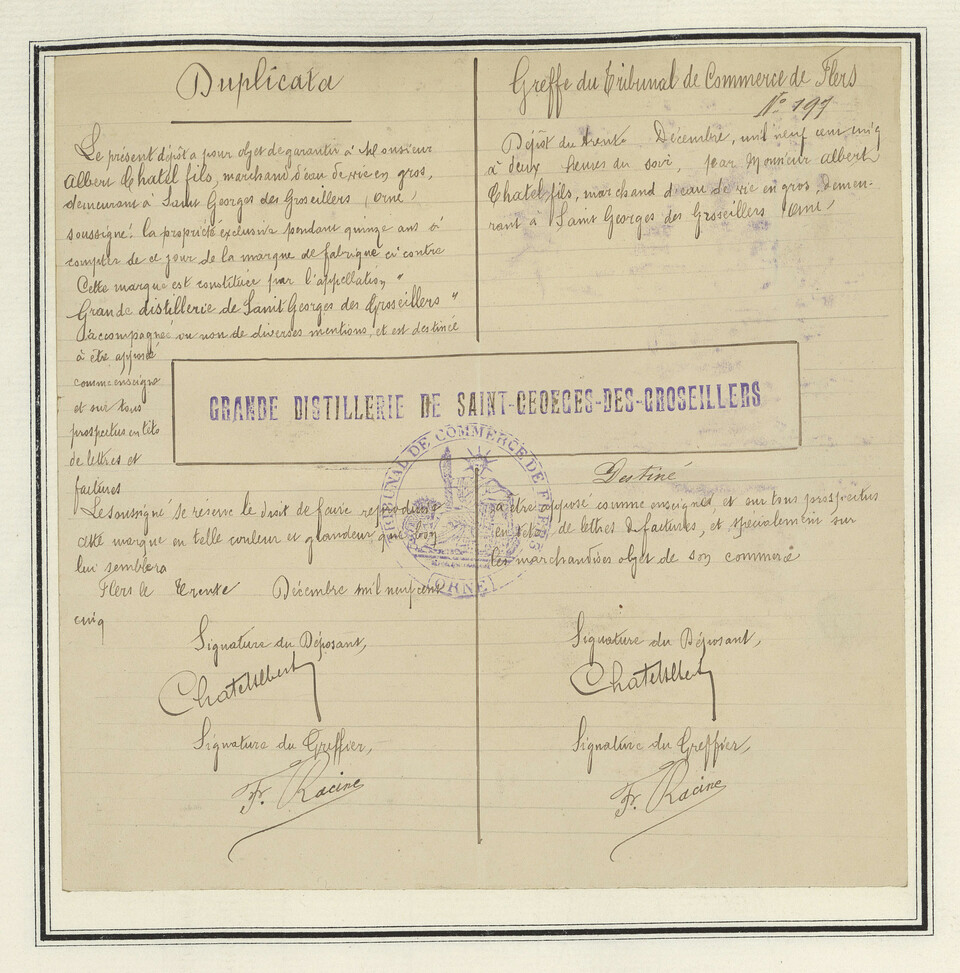 Duplicata
Le présent dépôt a pour objet de garantir à Monsieur
Albert Chatel fils, marchand d'eau de vie en gros,
demeurant à Saint Georges des Groseillers (Orne)
soussigné: la propriété exclusive pendant quinze ans à
compter de ce jour de la marque de fabrique ci contre
Cette marque est constituée par l'appellation "
Grande distillerie de Saint Georges des Groseillers "
accompagnée ou non de diverses mentions, et est destinée
à être apposé
comme enseigne
et sur tous
prospectus en tête
de lettres et
factures
Greffe du Tribunal de Commerce de Flers
N° 197
Dépôt du trente Décembre, mil neuf cent cinq
à deux heures du soir, par Monsieur Albert
Chatel fils, marchand d'eau de vie en gros, demeu-
rant à Saint Georges des Groseillers Orne
GRANDE DISTILLERIE DE SAINT-GEORGES-DES-GROSEILLERS
TRIBUNAL DE COMMERCE DE FLERS
(ORNE)
Le soussigné se réserve le droit de faire reproduire
cette marque en telle couleur et grandeur que bon
lui semblera
Flers le Trente Décembre mil neuf cent
cinq
Signature du Déposant,
Chatel Albert
Signature du Greffier,
Fr. Racine
Destiné
à être apposé comme enseigne, et sur tous prospectus
en tête de lettres & factures, et spécialement sur
les marchandises objet de son commerce
Signature du Déposant,
Chatel Albert
Signature du Greffier,
Fr. Racine